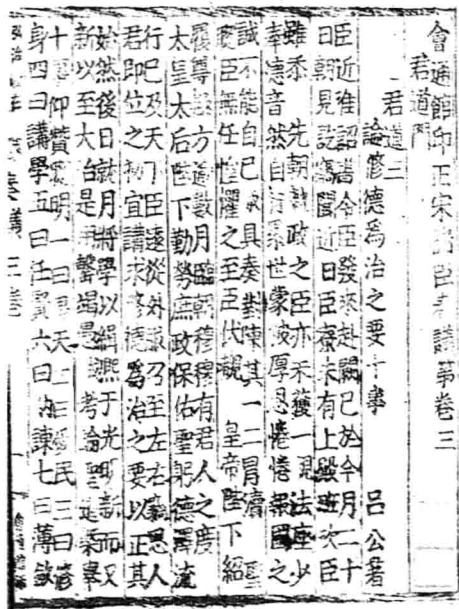 會通館印正宋諸臣奏議第卷三
君道門
君道三
論修德為治之要十事 呂公著
臣近准詔書令臣發來赴闕已於今月二十
日朝見訖竊聞近日臣寮未有上殿班次臣
雖忝先朝執政之臣亦未獲一見法座少
奉德音然自有累世蒙被厚恩惓惓報國之
誠不能自已輒具奏對陳其一二冒瀆聖
聽臣無任惶懼之至臣伏覩皇帝陛下紹
履尊極方逾數月臨朝穆穆有君人之度
太皇太后陛下勤勞庶政保佑聖躬德澤流
行已及天下臣遠從外服乃至左右竊思人
君即位之初宜講求修德為治之要以正其
始然後日就月將學以緝熙于光明新而又
新以至大治是用罄竭愚 考論聖道 舉
十事仰贊聰明一曰畏天二曰愛民三曰修
身四曰講學五曰任賢六曰納諫七曰薄斂
奏議 三卷